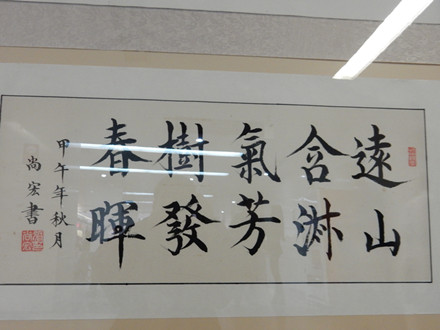 遠山
含淑
氣芳
樹發
春暉
甲午年秋月
尚宏書